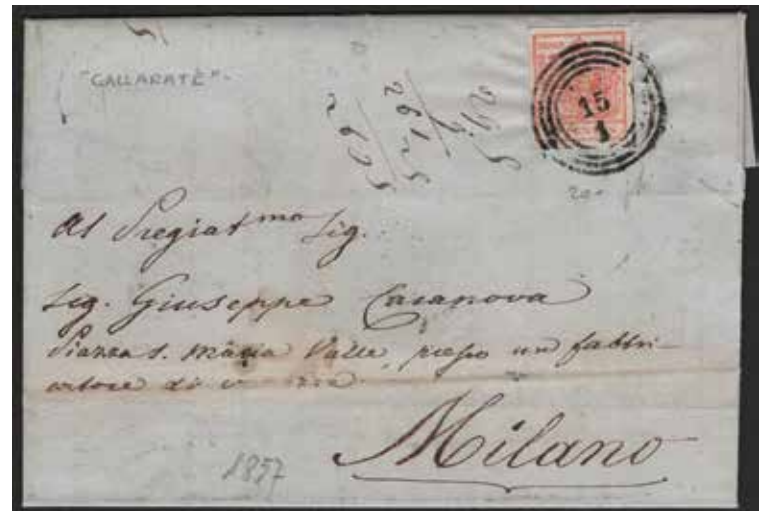 "GALLARATE".
15
1
200
Al Pregiat.mo Sig.
Sig. Giuseppe Casanova
Piazza S. Maria Valle, presso un fabbri-
catore di
Milano
1857